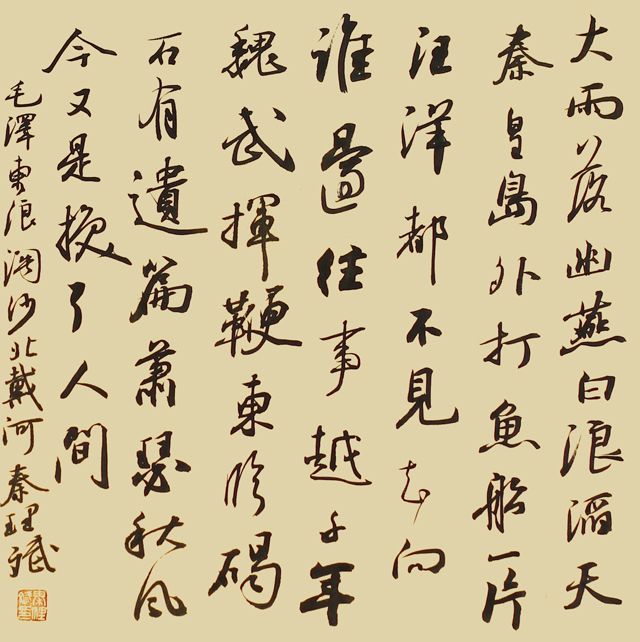 大雨落幽燕白浪滔天
秦皇島外打魚船一片
汪洋都不見知向
誰邊往事越千年
魏武揮鞭東臨碣
石有遺篇蕭瑟秋風
今又是換了人間
毛澤東浪淘沙北戴河秦理斌